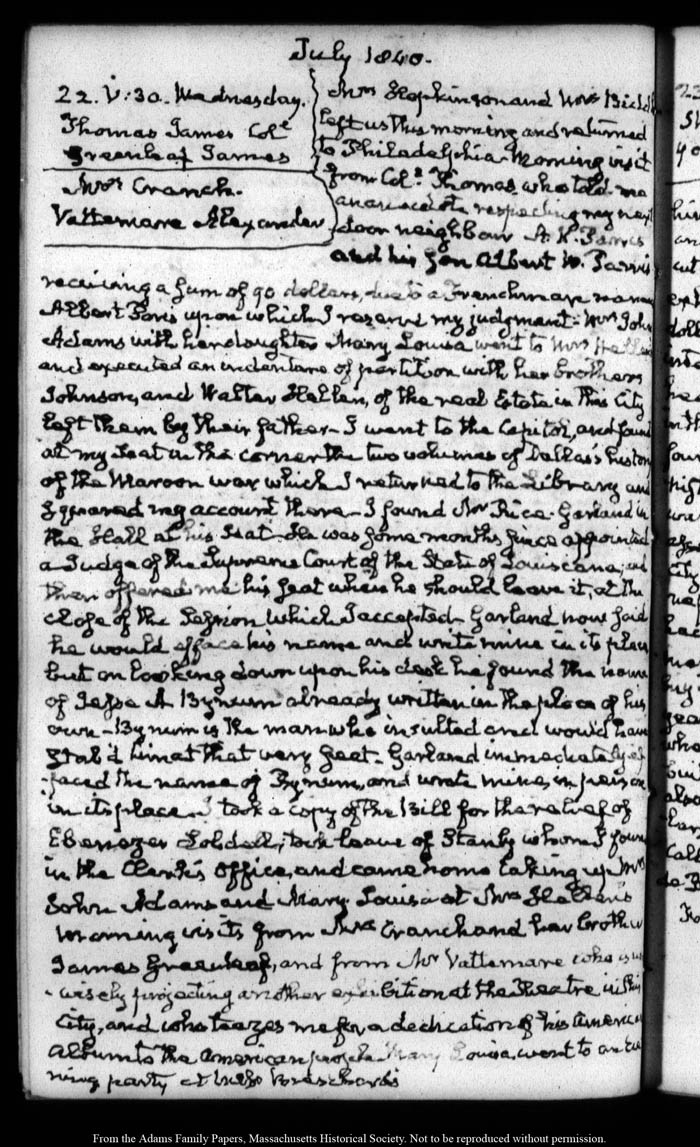 July 1840.
22. V:30. Wednesday.
Thomas James Colᵉ
Greenleaf James
Mrs Cranch.
Vattemare Alexander
Mrs Hopkinson and Mrs Bidd
left us this morning and returned
to Philadelphia. Morning visit
from Colᵉ Thomas, who told me
an anecdote respecting my next
door neighbour
and his Son Albert W.
receiving a sum of 90 dollars, due to a Frenchman named
Albert upon which I reserve my judgment. Mrs John
Adams with her daughter Mary Louisa went to Mrs Hellen's
and executed an indenture of partition with her brothers
Johnson, and Walter Hellen, of the real Estate in this City
left them by their father. I went to the Capitol, and found
at my Seat in the corner the two volumes of Dallas's history
of the Maroon war which I returned to the Library and
squared my account there. I found Mr Rice Garland in
the Hall at his Seat. He was some months since appointed
a Judge of the Supreme Court of the State of Louisiana, and
then offered me his seat when he should leave it, at the
close of the Session which I accepted. Garland now said
he would efface his name and write mine in its place
but on looking down upon his desk he found the name
of Jesse A Bynum already written in the place of his
own. Bynum is the man who insulted and would have
stab'd him at that very seat. Garland immediately ef
faced the name of Bynum, and wrote mine, in
in its place. I took a copy of the Bill for the relief of
Ebenezer Lobdell, took leave of Stanly whom I found
in the Clerk's Office, and came home taking up Mrs
John Adams and Mary Louisa at Mrs Hellen's
Morning visits from Mrs Cranch and her brother
James Greenleaf, and from Mr Vattemare who is un
wisely projecting another exhibition at the Theatre in this
City, and who teazes me for a dedication of his American
Album to the American people. Mary Louisa, went to an Eve
ning party at
From the Adams Family Papers, Massachusetts Historical Society. Not to be reproduced without permission.